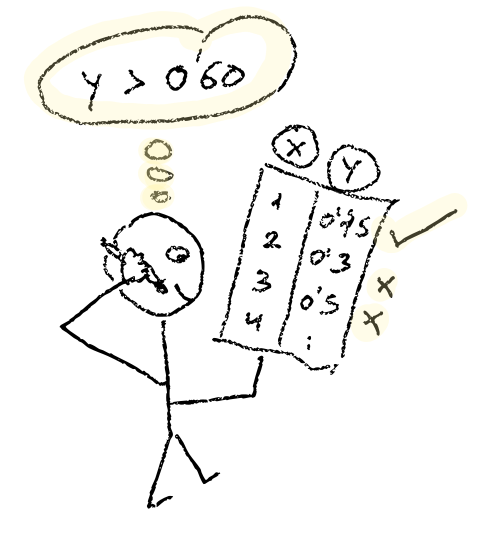 y > 0'60
X Y
1 0'75
2 0'3
3 0'5
4 :